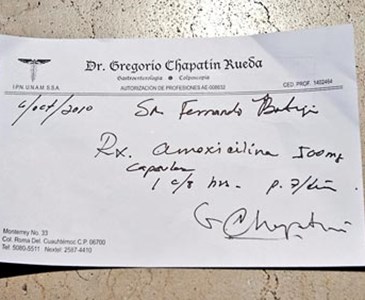 Dr. Gregorio Chapatín Rueda
Gastroenterología • Colposcopia
I.P.N. U.N.A.M. S.S.A.
AUTORIZACIÓN DE PROFESIONES AE-008632
CED. PROF. 1402494
6/oct/2010
Sr. Fernando
Rx. amoxicilina 500mg
capsulas
1 c/8 hrs. p. 7/días.
G Chapatín
Monterrey No. 33
Col. Roma Del. Cuauhtémoc C.P. 06700
Tel: 5080-5511 · Nextel: 2587-4410